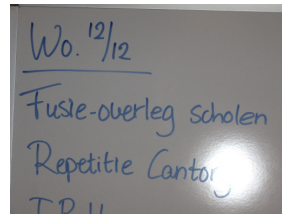 Wo. 12/12
Fusie-overleg scholen
Repetitie Cantor